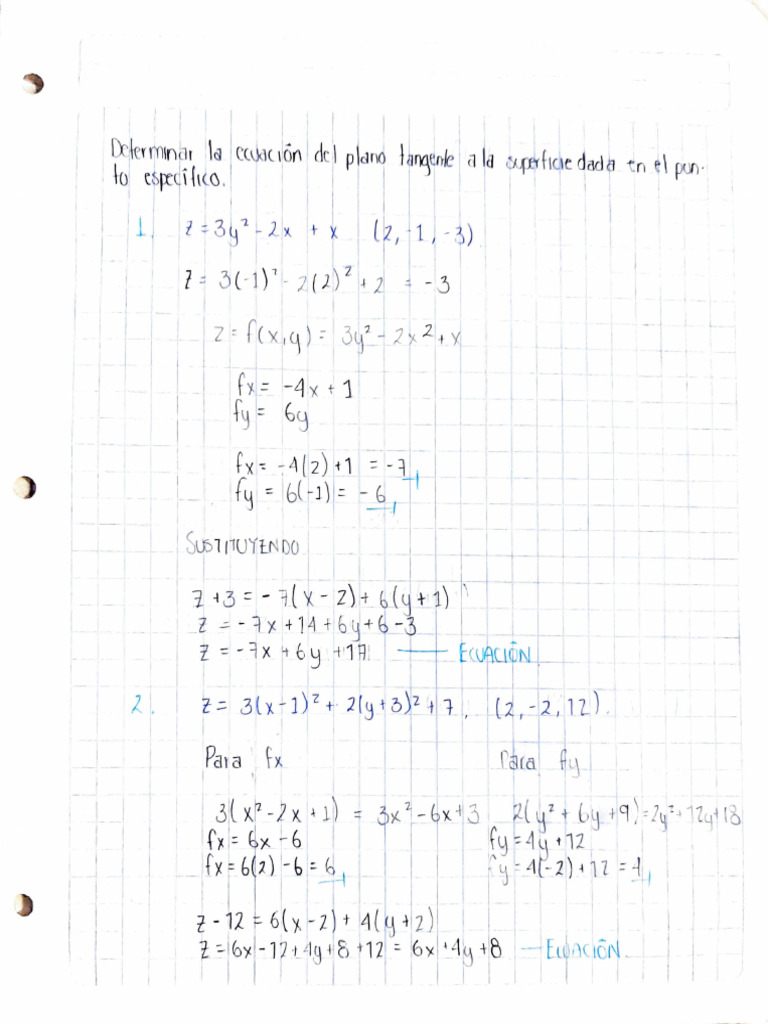 Determinar la ecuación del plano tangente a la superficie dada en el pun-
to específico.
1. z = 3y² - 2x + x (2, -1, -3)
z = 3(-1)² - 2(2)² + 2 = -3
z = f(x,y) = 3y² - 2x² + x
fx = -4x + 1
fy = 6y
fx = -4(2) + 1 = -7
fy = 6(-1) = -6
SUSTITUYENDO
z + 3 = -7(x - 2) + 6(y + 1)
z = -7x + 14 + 6y + 6 - 3
z = -7x + 6y + 17 ECUACIÓN
2. z = 3(x-1)² + 2(y+3)² + 7, (2, -2, 12).
Para fx Para fy
3(x² - 2x + 1) = 3x² - 6x + 3 2(y² + 6y + 9) = 2y² + 12y + 18
fx = 6x - 6 fy = 4y + 12
fx = 6(2) - 6 = 6 fy = 4(-2) + 12 = 4
z - 12 = 6(x - 2) + 4(y + 2)
z = 6x - 12 + 4y + 8 + 12 = 6x + 4y + 8 ECUACIÓN.